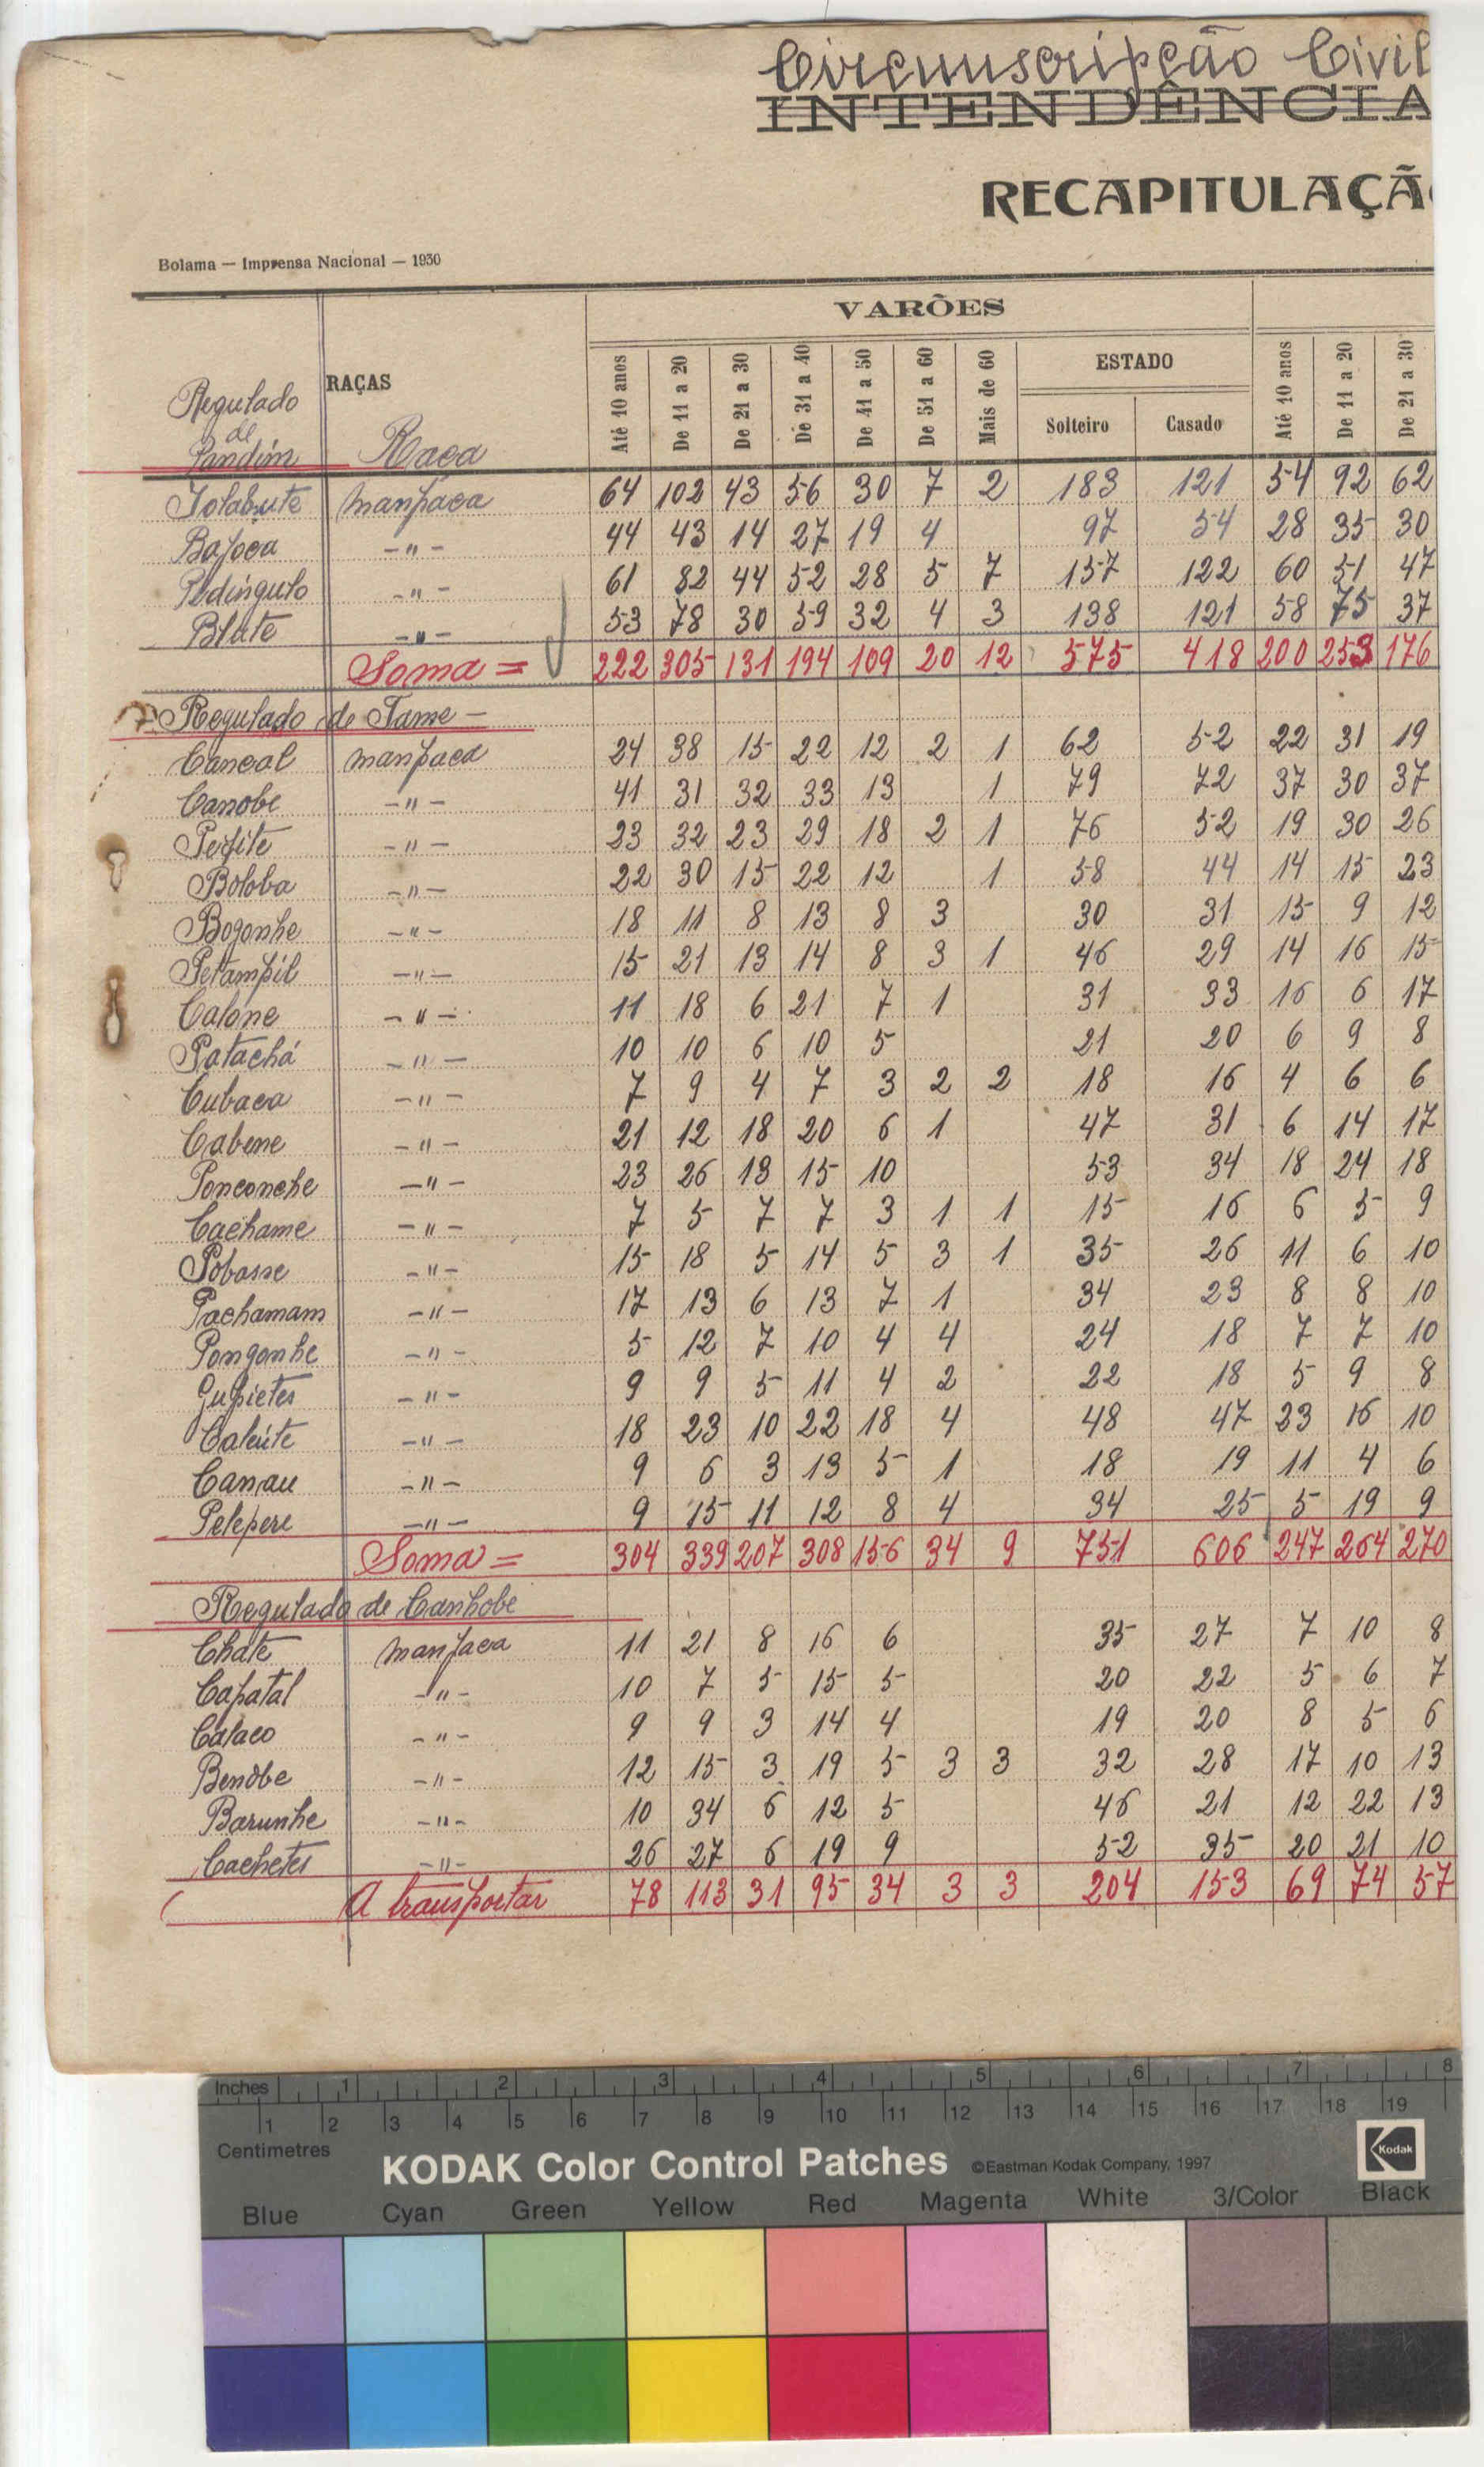 Circumscripção Civil
INTENDÊNCIA
RECAPITULAÇÃ
Bolama — Imprensa Nacional — 1930
VARÕES
RAÇAS
Até 10 anos De 11 a 20 De 21 a 30 De 31 a 40 De 41 a 50 De 51 a 60 Mais de 60 ESTADO Até 10 anos De 11 a 20 De 21 a 30
Solteiro Casado
Regulado
de
Pandim Raça
Tolabute manjaca 64 102 43 56 30 7 2 183 121 54 92 62
Bajoca -"- 44 43 14 27 19 4 97 54 28 35 30
Pedingulo -"- 61 82 44 52 28 5 7 157 122 60 51 47
Blute -"- 53 78 30 59 32 4 3 138 121 58 75 37
Soma = 222 305 131 194 109 20 12 575 418 200 253 176
Regulado de Tame —
Cancal manjaca 24 38 15 22 12 2 1 62 52 22 31 19
Canobe -"- 41 31 32 33 13 1 79 72 37 30 37
Pefite -"- 23 32 23 29 18 2 1 76 52 19 30 26
Boloba -"- 22 30 15 22 12 1 58 44 14 15 23
Bogonhe -"- 18 11 8 13 8 3 30 31 15 9 12
Petampil -"- 15 21 13 14 8 3 1 46 29 14 16 15
Calone -"- 11 18 6 21 7 1 31 33 16 6 17
Patachá -"- 10 10 6 10 5 21 20 6 9 8
Cubaca -"- 7 9 4 7 3 2 2 18 16 4 6 6
Cabene -"- 21 12 18 20 6 1 47 31 6 14 17
Ponconche -"- 23 26 13 15 10 53 34 18 24 18
Cachame -"- 7 5 7 7 3 1 1 15 16 6 5 9
Pobasse -"- 15 18 5 14 5 3 1 35 26 11 6 10
Pachamam -"- 17 13 6 13 7 1 34 23 8 8 10
Pongonhe -"- 5 12 7 10 4 4 24 18 7 7 10
Gupietes -"- 9 9 5 11 4 2 22 18 5 9 8
Caleúte -"- 18 23 10 22 18 4 48 47 23 16 10
Canau -"- 9 6 3 13 5 1 18 19 11 4 6
Pelepere -"- 9 15 11 12 8 4 34 25 5 19 9
Soma = 304 339 207 308 156 34 9 751 606 247 264 270
Regulado de Canhobe
Chate manjaca 11 21 8 16 6 35 27 7 10 8
Capatal -"- 10 7 5 15 5 20 22 5 6 7
Calaco -"- 9 9 3 14 4 19 20 8 5 6
Benobe -"- 12 15 3 19 5 3 3 32 28 17 10 13
Barunhe -"- 10 34 6 12 5 46 21 12 22 13
Cachetes -"- 26 27 6 19 9 52 35 20 21 10
A transportar 78 113 31 95 34 3 3 204 153 69 74 57
Inches 1 2 3 4 5 6 7 8
1 2 3 4 5 6 7 8 9 10 11 12 13 14 15 16 17 18 19
Centimetres
KODAK Color Control Patches ©Eastman Kodak Company, 1997 Kodak
Blue Cyan Green Yellow Red Magenta White 3/Color Black